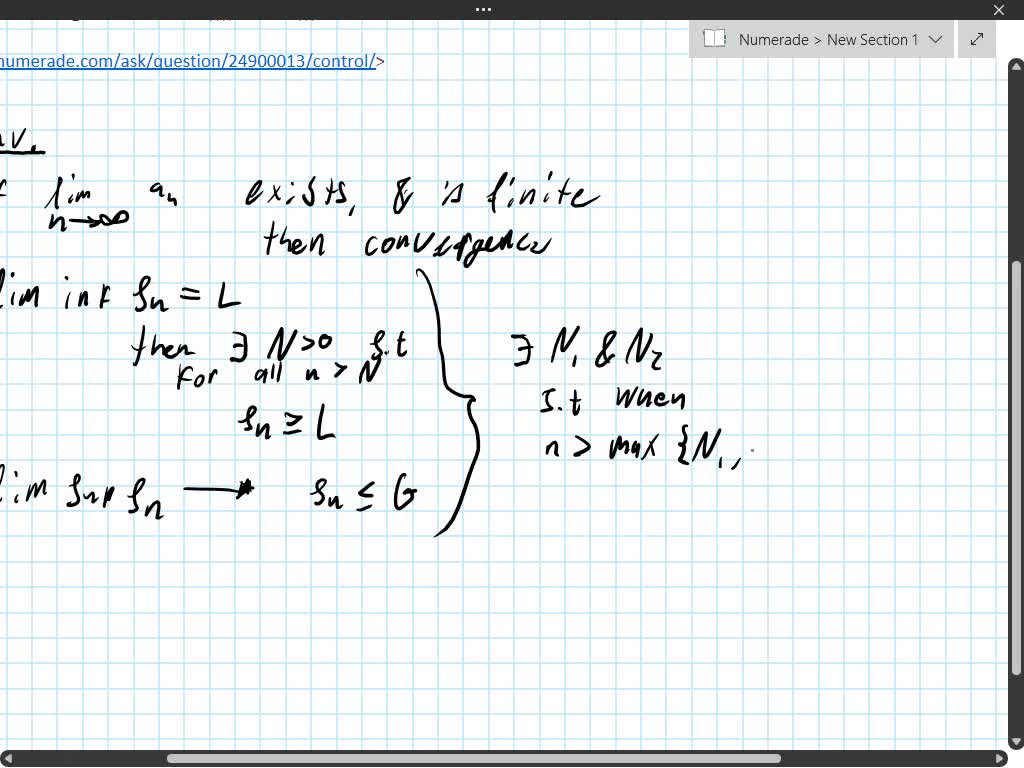 Numerade > New Section 1
numerade.com/ask/question/24900013/control/>
lim aₙ exists, & is finite
n→∞
then convergence
lim inf sₙ = L
then ∃ N>0 s.t
for all n > N
sₙ ≥ L
lim sup sₙ → sₙ ≤ G
∃ N₁ & N₂
s.t when
n > max {N₁,